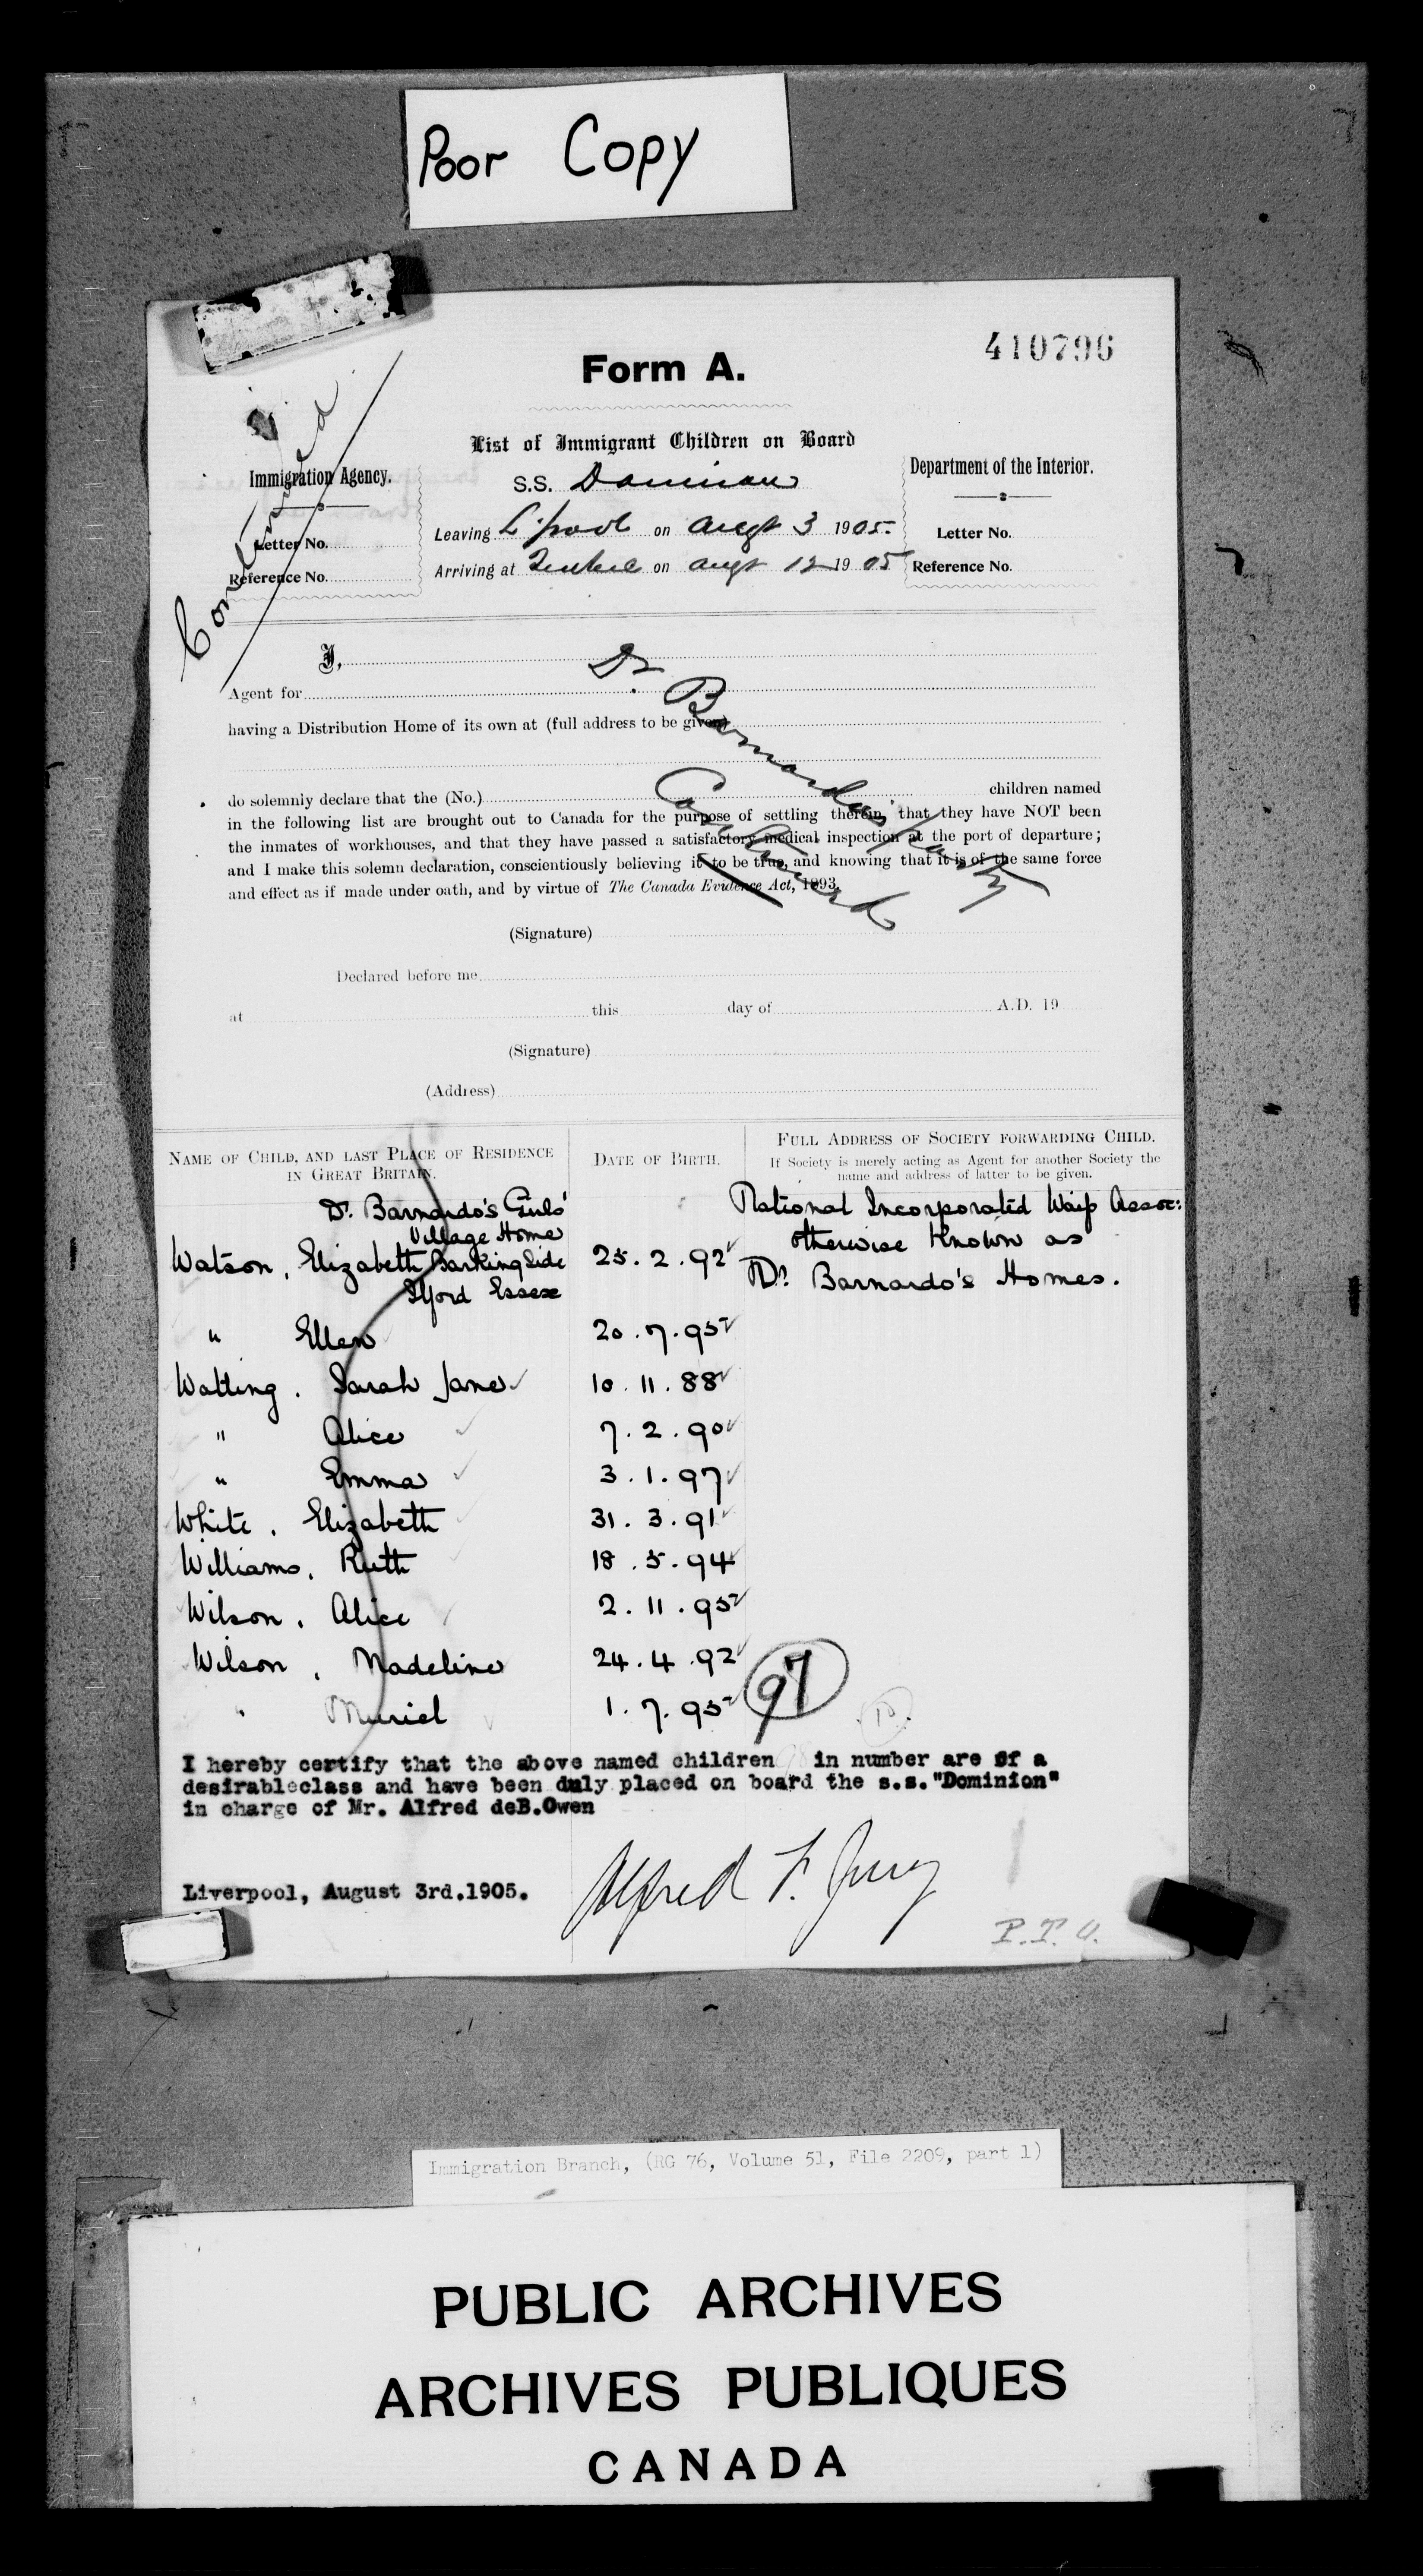 Poor Copy
410796
Form A.
List of Immigrant Children on Board
Immigration Agency.
Department of the Interior.
S.S. Dominion
Letter No.
Leaving L'pool on Augt 3 1905
Letter No.
Reference No.
Arriving at Quebec on Augt 12 19 05
Reference No.
I,
Dr Barnardo's Party
Continued
Agent for
having a Distribution Home of its own at (full address to be given)
do solemnly declare that the (No.) children named
in the following list are brought out to Canada for the purpose of settling therein, that they have NOT been
the inmates of workhouses, and that they have passed a satisfactory medical inspection at the port of departure;
and I make this solemn declaration, conscientiously believing it to be true, and knowing that it is of the same force
and effect as if made under oath, and by virtue of The Canada Evidence Act, 1893.
(Signature)
Declared before me
at this day of A.D. 19
(Signature)
(Address)
NAME OF CHILD, AND LAST PLACE OF RESIDENCE
IN GREAT BRITAIN.
DATE OF BIRTH.
FULL ADDRESS OF SOCIETY FORWARDING CHILD.
If Society is merely acting as Agent for another Society the
name and address of latter to be given.
Dr. Barnardo's Girls'
Village Home
National Incorporated Waif Assoc:
otherwise known as
Dr. Barnardo's Homes.
Watson, Elizabeth Barkingside 25.2.92
Ilford Essex
" Ellen 20.7.95
Watling. Sarah Jane 10.11.88
" Alice 7.2.90
" Emma 3.1.97
White, Elizabeth 31.3.91
Williams, Ruth 18.5.94
Wilson, Alice 2.11.95
Wilson, Madeline 24.4.92
97
" Muriel 1.7.95
I hereby certify that the above named children 98 in number are of a
desirable class and have been duly placed on board the s.s."Dominion"
in charge of Mr. Alfred deB.Owen
Alfred F. Jury
Liverpool, August 3rd.1905.
P.T.O.
Immigration Branch, (RG 76, Volume 51, File 2209, part 1)
PUBLIC ARCHIVES
ARCHIVES PUBLIQUES
CANADA